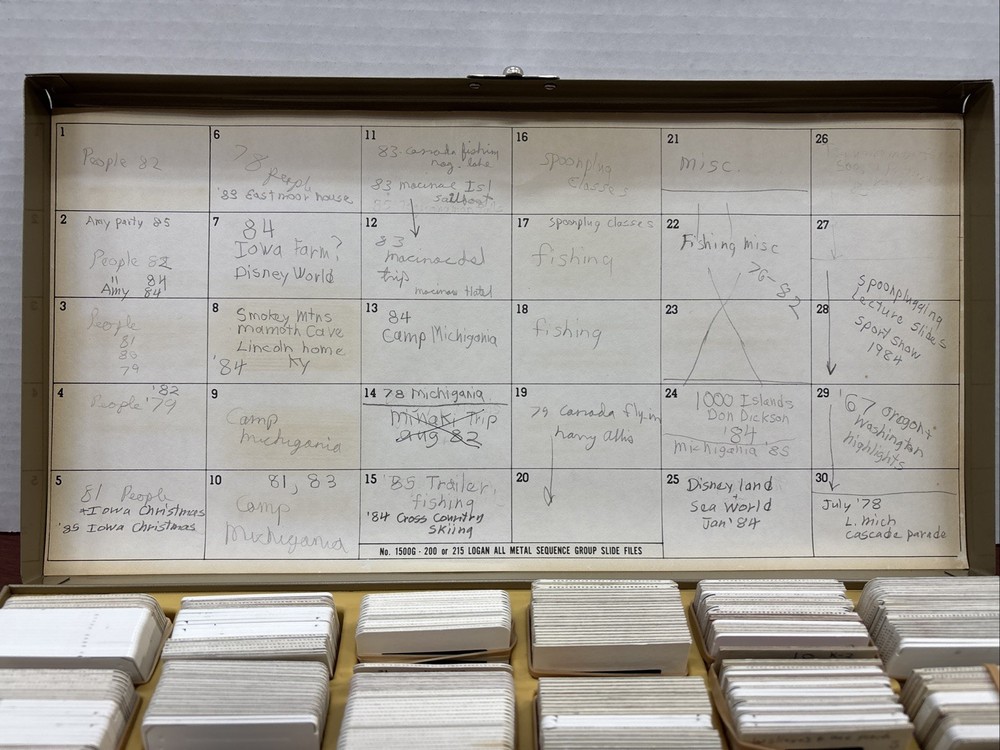 1
People 82
2
Amy party 85
People 82
" 84
Amy 84
3
People
81
80
79
4
'82
People '79
5
81 People
+Iowa Christmas
'85 Iowa Christmas
6
78
people
'83 Eastmoor house
7
84
Iowa Farm?
Disney World
8
Smokey Mtns
Mamoth Cave
Lincoln home
'84 Ky
9
Camp
Michigania
10
81, 83
Camp
Michigania
11
83 canada fishing
83 macinac Isl
sailboat
12
83
trip
macinac Hotel
13
84
Camp Michigania
14 78 Michigania
Minaki Trip
aug 82
15 '85 Trailer,
fishing
'84 Cross Country
Skiing
16
spoonplug
classes
17
spoonplug classes
fishing
18
fishing
19
79 Canada fly in
20
21
misc.
22
Fishing misc
76-82
23
24
1000 Islands
Don Dickson
'84
Michigania '85
25
Disneyland
+
Sea World
Jan '84
26
27
28
Spoonplugging
Lecture slides
Sport Show
1984
29
'67 Oregon +
Washington
highlights
30
July '78
L. Mich
cascade parade
No. 1500G - 200 or 215 LOGAN ALL METAL SEQUENCE GROUP SLIDE FILES